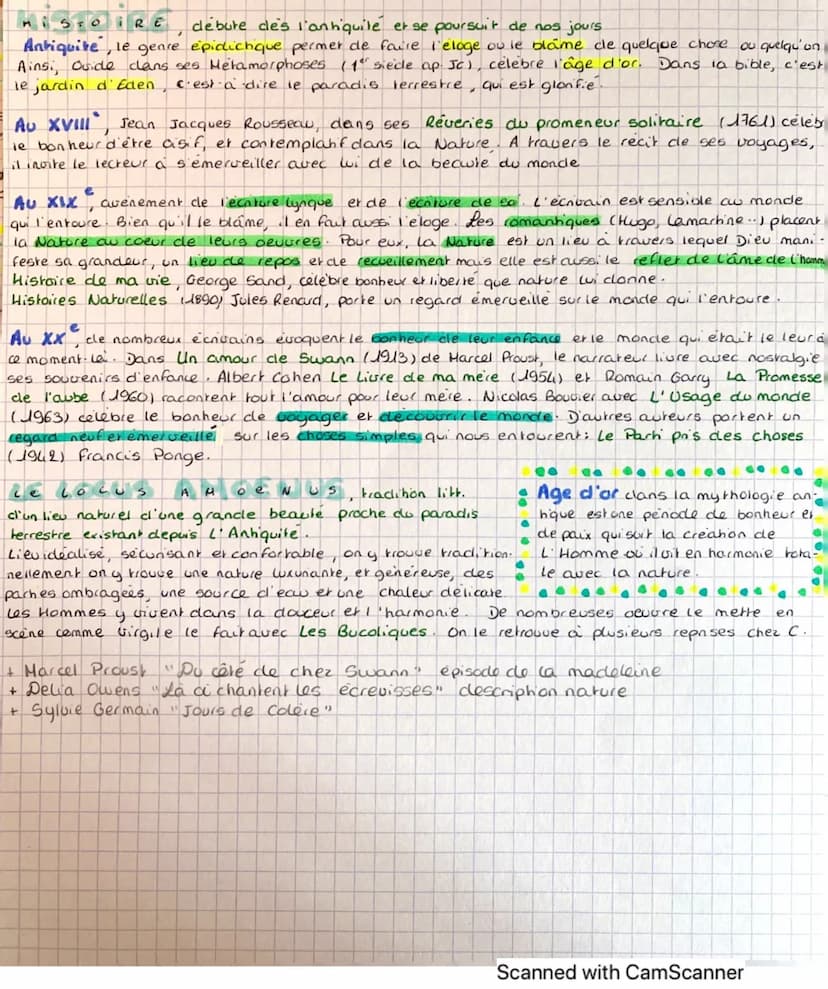 HISTOIRE, débute dès l'antiquité et se poursuit de nos jours
Antiquité, le genre épidichque permet de faire l'éloge ou le blâme de quelque chose ou quelqu'un
Ainsi, Ovide dans ses Métamorphoses (1er siècle ap Jc), célèbre l'âge d'or. Dans la bible, c'est
le jardin d'Eden, c'est-à-dire le paradis terrestre, qui est glorifié.
Au XVIIIe, Jean Jacques Rousseau, dans ses Rêveries du promeneur solitaire (1761) célèb
le bonheur d'être actif, et contemplatif dans la Nature. A travers le récit de ses voyages,
il invite le lecteur à s'émerveiller avec lui de la beauté du monde
Au XIXe, avènement de l'écriture lyrique et de l'écriture de soi. L'écrivain est sensible au monde
qui l'entoure. Bien qu'il le blâme, il en fait aussi l'éloge. Les romantiques (Hugo, Lamartine..) placent
la Nature au coeur de leurs oeuvres. Pour eux, la Nature est un lieu à travers lequel Dieu mani-
feste sa grandeur, un lieu de repos et de recueillement mais elle est aussi le reflet de l'âme de l'homm
Histoire de ma vie, George Sand, célèbre bonheur et liberté que nature lui donne.
Histoires Naturelles (1890) Jules Renard, porte un regard émerveillé sur le monde qui l'entoure.
Au XXe, de nombreux écrivains évoquent le bonheur de leur enfance et le monde qui était le leur à
ce moment-là. Dans Un amour de Swann (1913) de Marcel Proust, le narrateur livre avec nostalgie
ses souvenirs d'enfance. Albert Cohen Le Livre de ma mère (1954) et Romain Garry La Promesse
de l'aube (1960) racontent tout l'amour pour leur mère. Nicolas Bouvier avec L'Usage du monde
(1963) célèbre le bonheur de voyager et découvrir le monde. D'autres auteurs portent un
regard neuf et émerveillé sur les choses simples, qui nous entourent: Le Parti pris des choses
(1942) Francis Ponge.
LE LOCUS AMOENUS, tradition litt.
d'un lieu naturel d'une grande beauté proche du paradis
terrestre existant depuis L'Antiquité.
Lieu idéalisé, sécurisant et confortable, on y trouve tradition-
nellement on y trouve une nature luxuriante, et généreuse, des
parties ombragées, une source d'eau et une chaleur délicate.
Les Hommes y vivent dans la douceur et l'harmonie. De nombreuses oeuvre le mette en
scène comme Virgile le fait avec Les Bucoliques. On le retrouve à plusieurs reprises chez C.
Age d'or dans la mythologie an-
tique est une période de bonheur et
de paix qui suit la création de
L'Homme où il vit en harmonie tota-
le avec la nature.
+ Marcel Proust "Du côté de chez Swann" épisode de la madeleine
+ Delia Owens "Là où chantent les écrevisses" description nature
+ Sylvie Germain "Jours de Colère"
Scanned with CamScanner